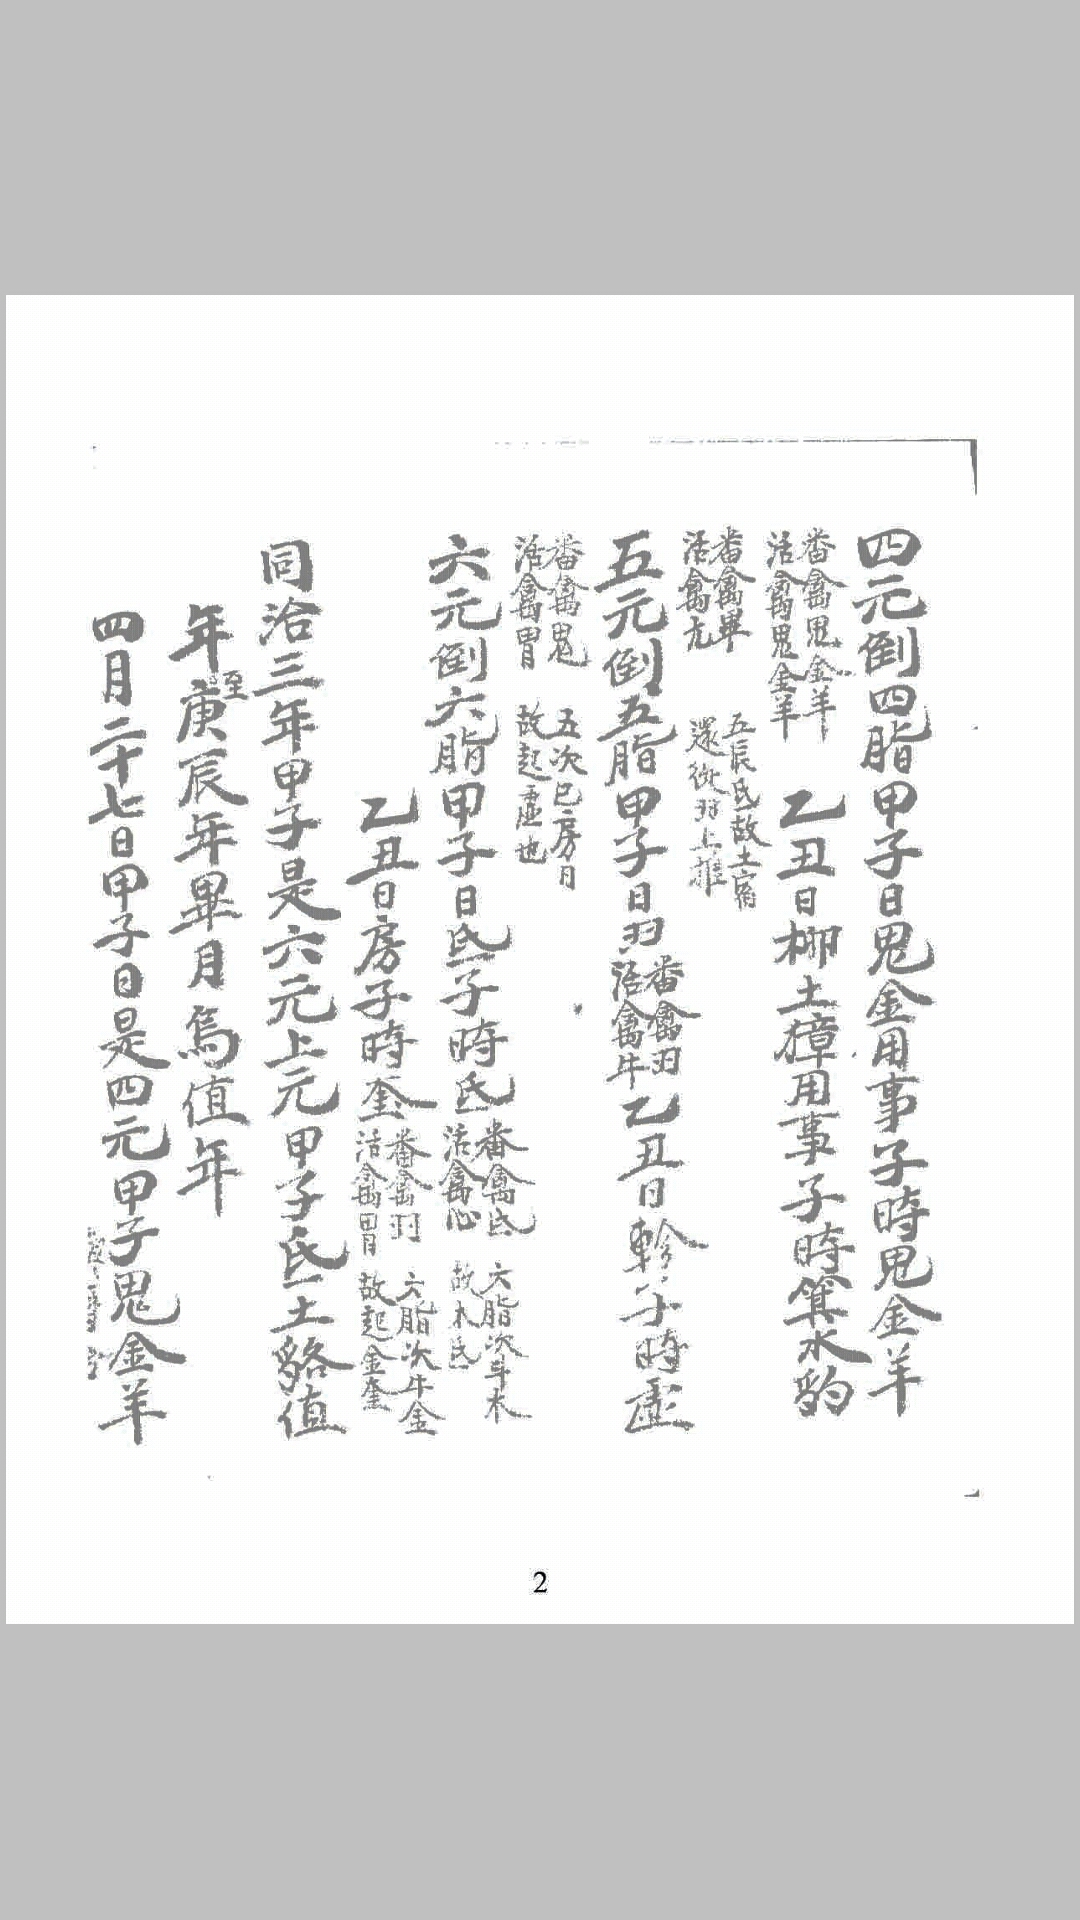 四元倒四脂甲子日鬼金用事子時鬼金羊
番禽鬼金羊
活禽鬼金羊
乙丑日柳土獐用事子時箕水豹
番禽畢
活禽亢
五辰氐故土宿
還從羽上推
五元倒五脂甲子日羽
番禽羽
活禽牛
乙丑日軫子時虛
番禽鬼
活禽胃
五次巳房日
故起虛也
六元倒六脂甲子日氐子時氐
番禽氐
活禽心
六脂次斗木
故木氐
乙丑日房子時奎
番禽羽
活禽胃
六脂次牛金
故起金奎
同治三年甲子是六元上元甲子氐土貉值
年至庚辰年畢月烏值年
四月二十七日甲子日是四元甲子鬼金羊
2